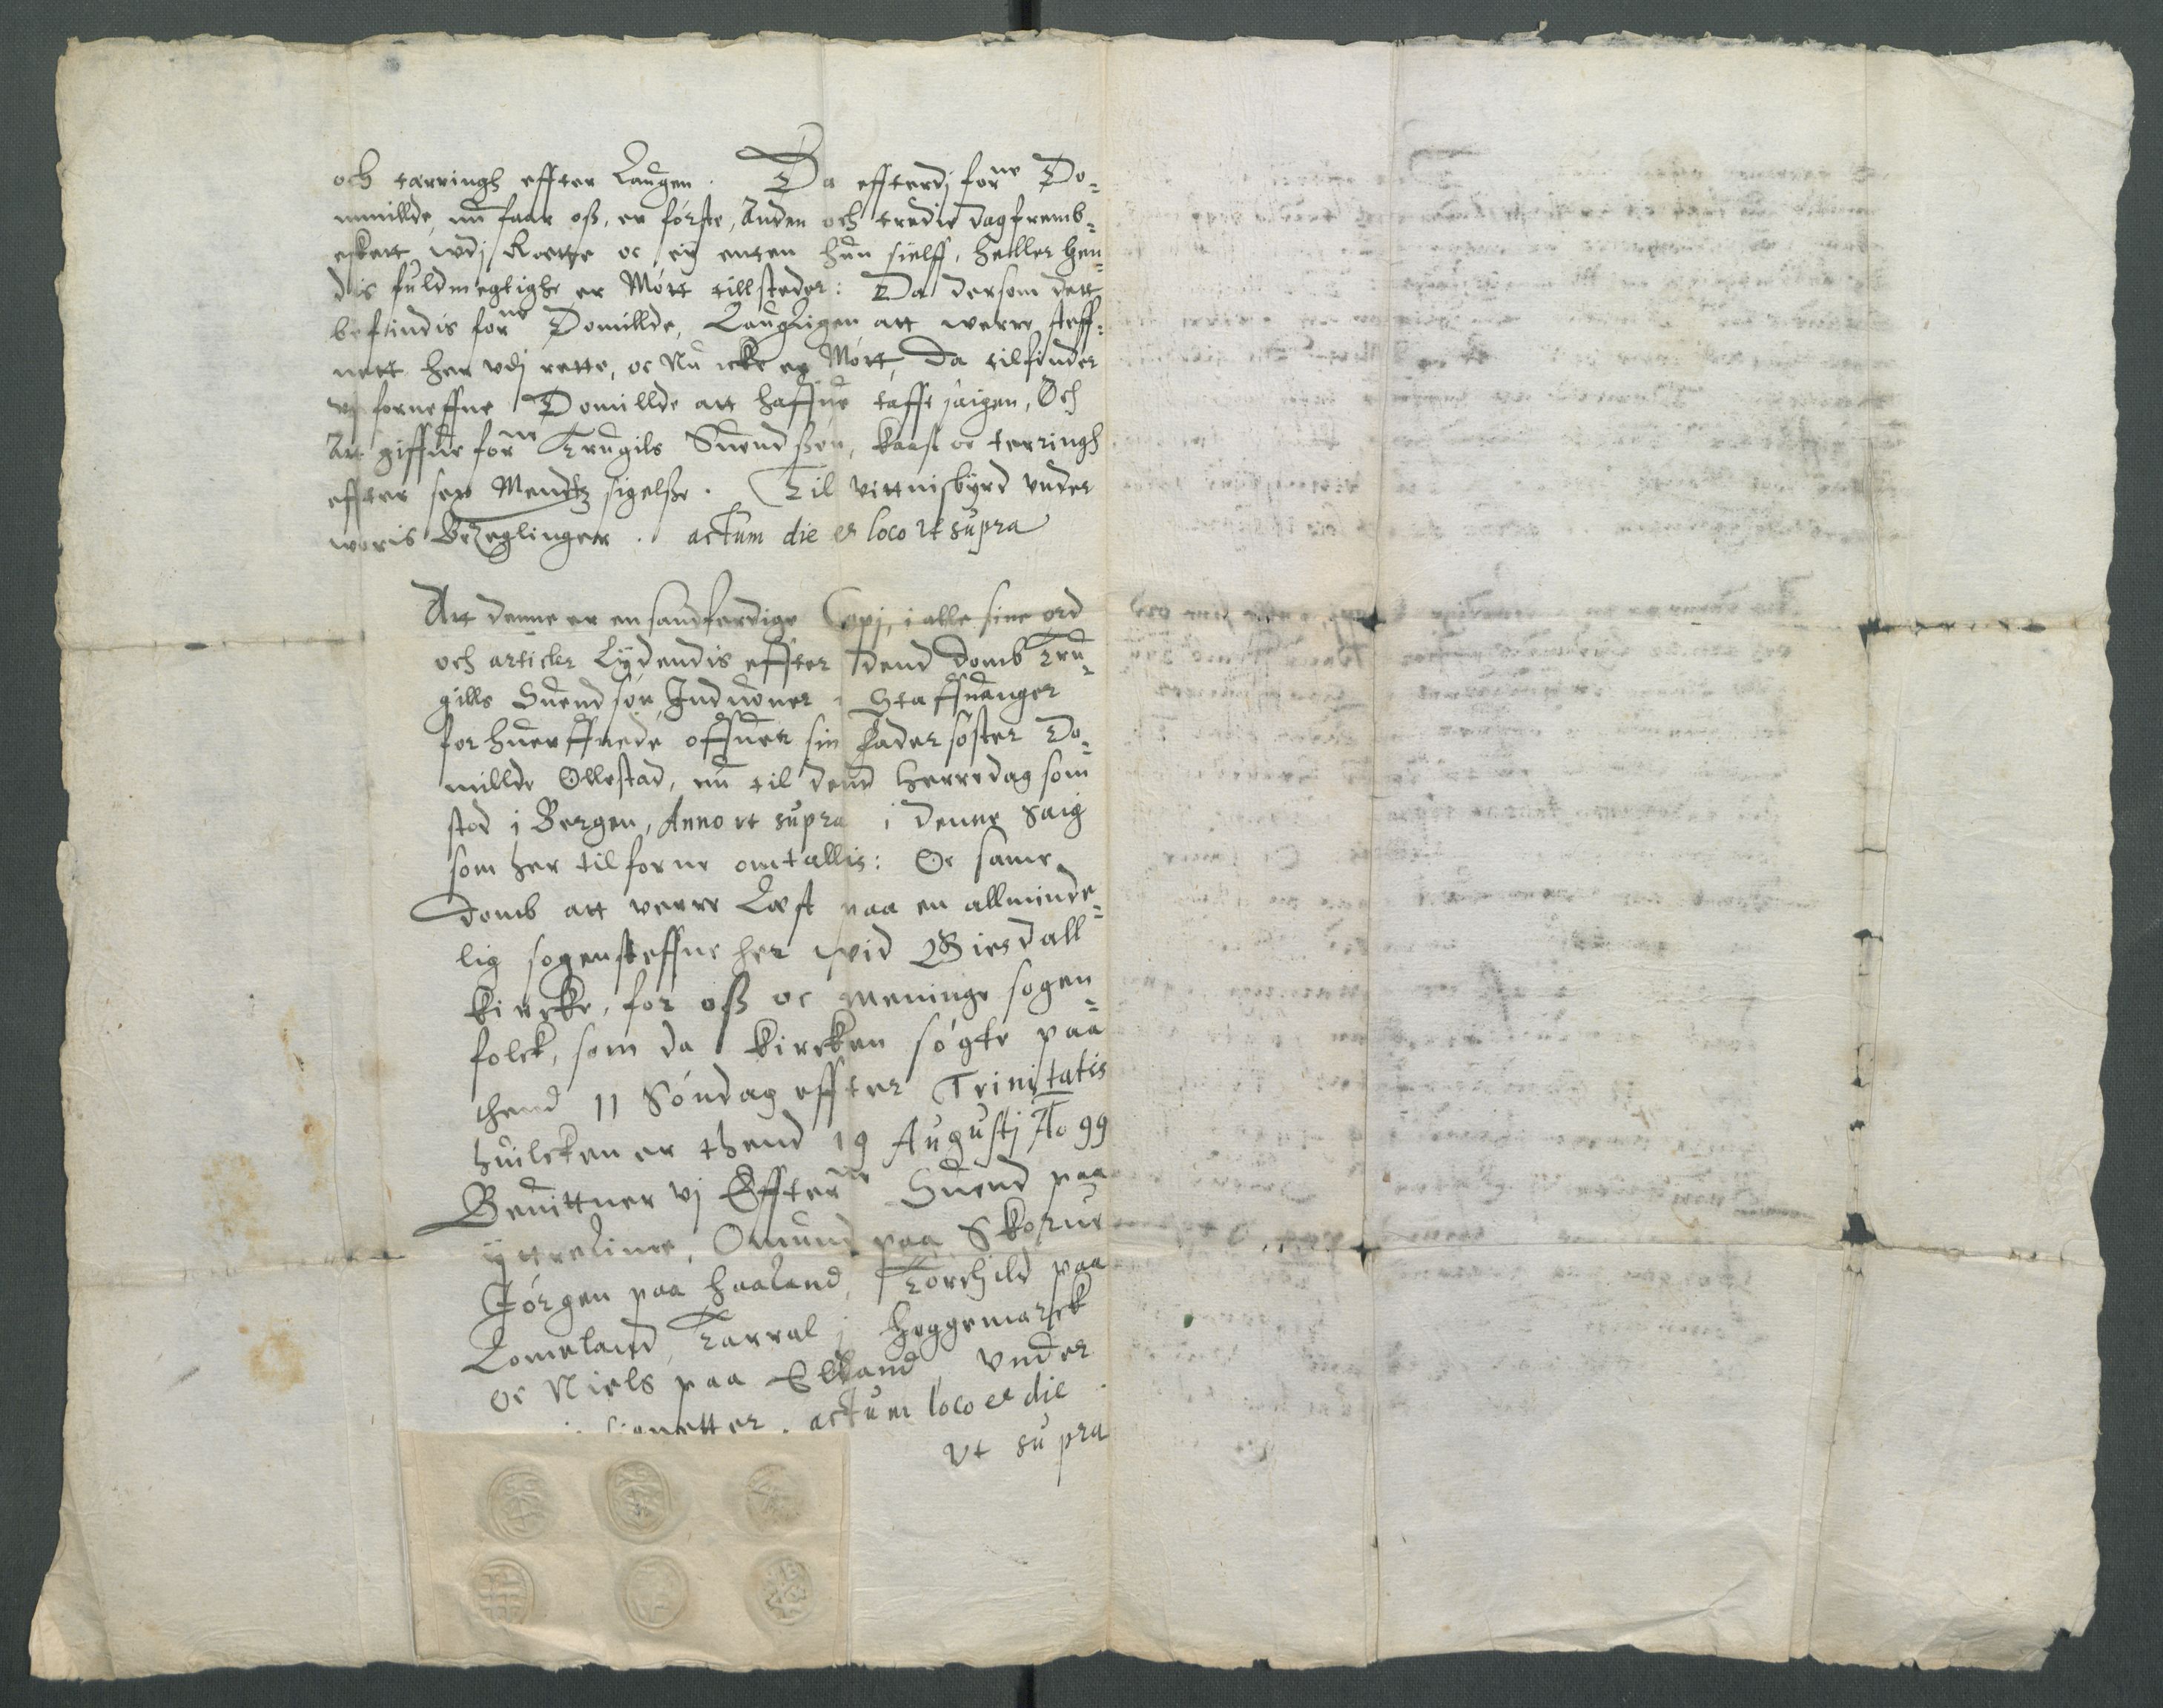 och tærringh effter Laugen. Da effterdj forne Do-
mmillde, nu faar oß, er første, Anden och tredie dag fremb-
eskett udj Rætte oc ey enten hun sielff, heller hen-
dis fuldmegtighe er Mött tillsteder: Da dersom dett
befindis forne Domillde, Laugligen att were steff-
nett her vdj rette, oc Nu icke er Mött, Da tilfinder
vj forneffne Domillde att haffue tafft saigen, Och
Att giffue forne Trugils Suendßøn, kaast oc terringh
effter sex Mendtz sigelße. Til vittnisbyrd vnder
woris Bezeglinger. actum die et loco vt supra
Att denne er en sandferdige Copj, i alle sine ord
och articler Lydendis effter dend domb Tru-
gills Suendsøn, Induoner i Staffuanger
forhuerffuede offuer sin fadersøster Do-
millde Ollestad, nu til dend herredag som
stod i Bergen, Anno vt supra i denne Saig
som her tilforne omtallis: Oc same
domb att verre Læst paa en allminde-
lig sogensteffne her wid Giesdall
kircke, for oß oc meninge sogen-
folck, som da kircken søgte paa
thend 11 Söndag effter Trinitatis
huilcken er thend 19 Augustj Ao 99
Beuittner vj Effterne Suend paa
ytreLime, Omund paa Skorue
Jørgen paa haaland, Torchild paa
Lomeland, Tarral j heggemarck
oc Niels paa Elland, vnder
signetter. actum loco et die
vt supra